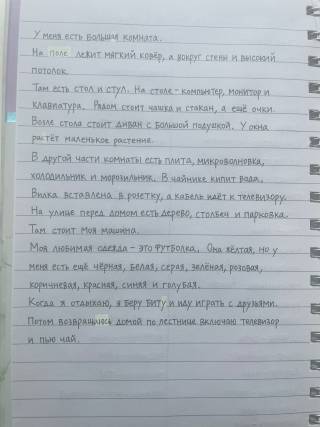 У меня есть большая комната.
На поле лежит мягкий ковёр, а вокруг стены и высокий
потолок.
Там есть стол и стул. На столе - компьютер, монитор и
клавиатура. Рядом стоит чашка и стакан, а ещё очки.
Возле стола стоит диван с большой подушкой. У окна
растёт маленькое растение.
В другой части комнаты есть плита, микроволновка,
холодильник и морозильник. В чайнике кипит вода.
Вилка вставлена в розетку, а кабель идёт к телевизору.
На улице перед домом есть дерево, столбеч и парковка.
Там стоит моя машина.
Моя любимая одежда - это футболка. Она жёлтая, но у
меня есть ещё чёрная, белая, серая, зелёная, розовая,
коричневая, красная, синяя и голубая.
Когда я отдыхаю, я беру биту и иду играть с друзьями.
Потом возвращаюсь домой по лестнице включаю телевизор
и пью чай.